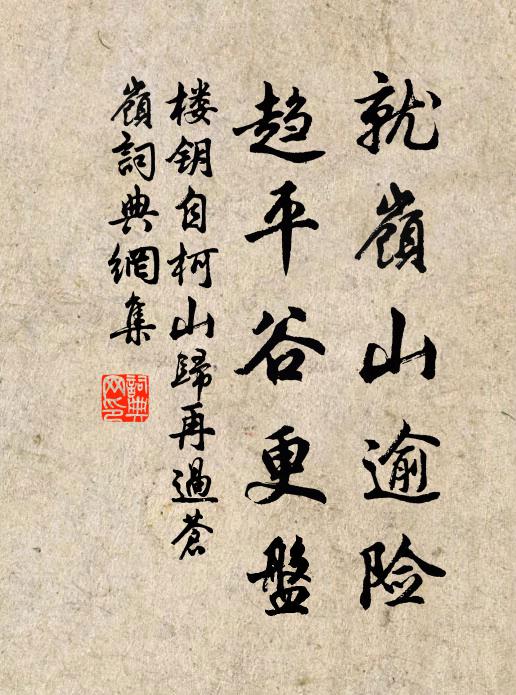 就嶺山逾险
趋平谷更盤
楼钥自柯山歸再過蒼
嶺詞典網集
詞典
网印